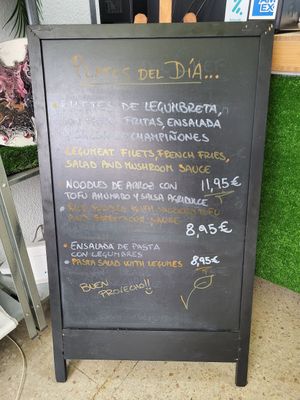 PLATOS DEL DÍA...
FILETES DE LEGUMBRETA,
FRITAS, ENSALADA
CHAMPIÑONES
LEGUMEAT FILETS, FRENCH FRIES,
SALAD AND MUSHROOM SAUCE
11,95€
NOODLES DE ARROZ CON
TOFU AHUMADO Y SALSA AGRIDULCE
RICE NOODLES WITH SMOKED TOFU
AND SAUCE
8,95€
• ENSALADA DE PASTA
CON LEGUMBRES
• PASTA SALAD WITH LEGUMES 8,95€
BUEN
PROVECHO!!